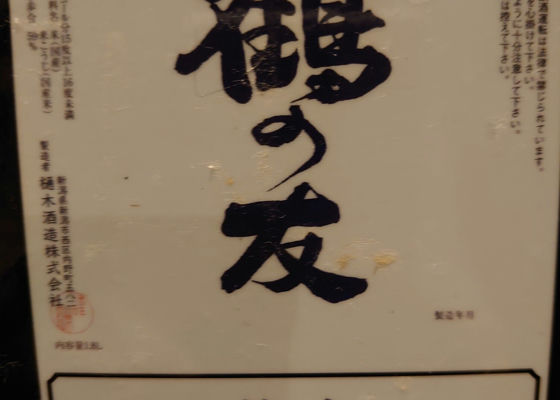 酒運転は法律で禁じられています。
を心掛けて下さい。
ように十分注意して下さい。
は控えて下さい。
鶴の友
製造年月
アルコール分15度以上16度未満
原材料名 米(国産)
米こうじ(国産米)
歩合 59%
製造者
新潟県新潟市西区内野町五八二
樋木酒造株式会社
内容量1.8L